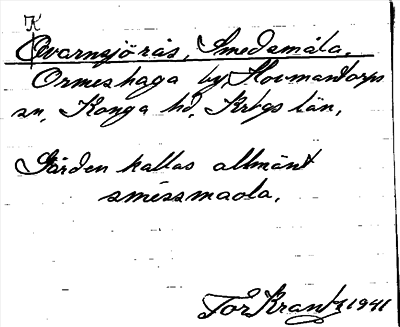 K
Qvarnsjörås, Smedamåla.
Ormeshaga by, Hovmantorps
sn, Konga hd, Krbgs län.
Gården kallas allmänt
smessmaola.
Tor Krantz 1941